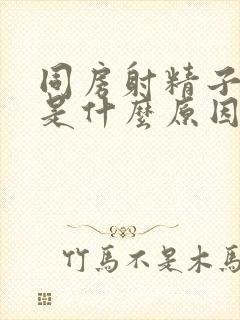 同房射精子
是什麼原因
竹馬不是木馬